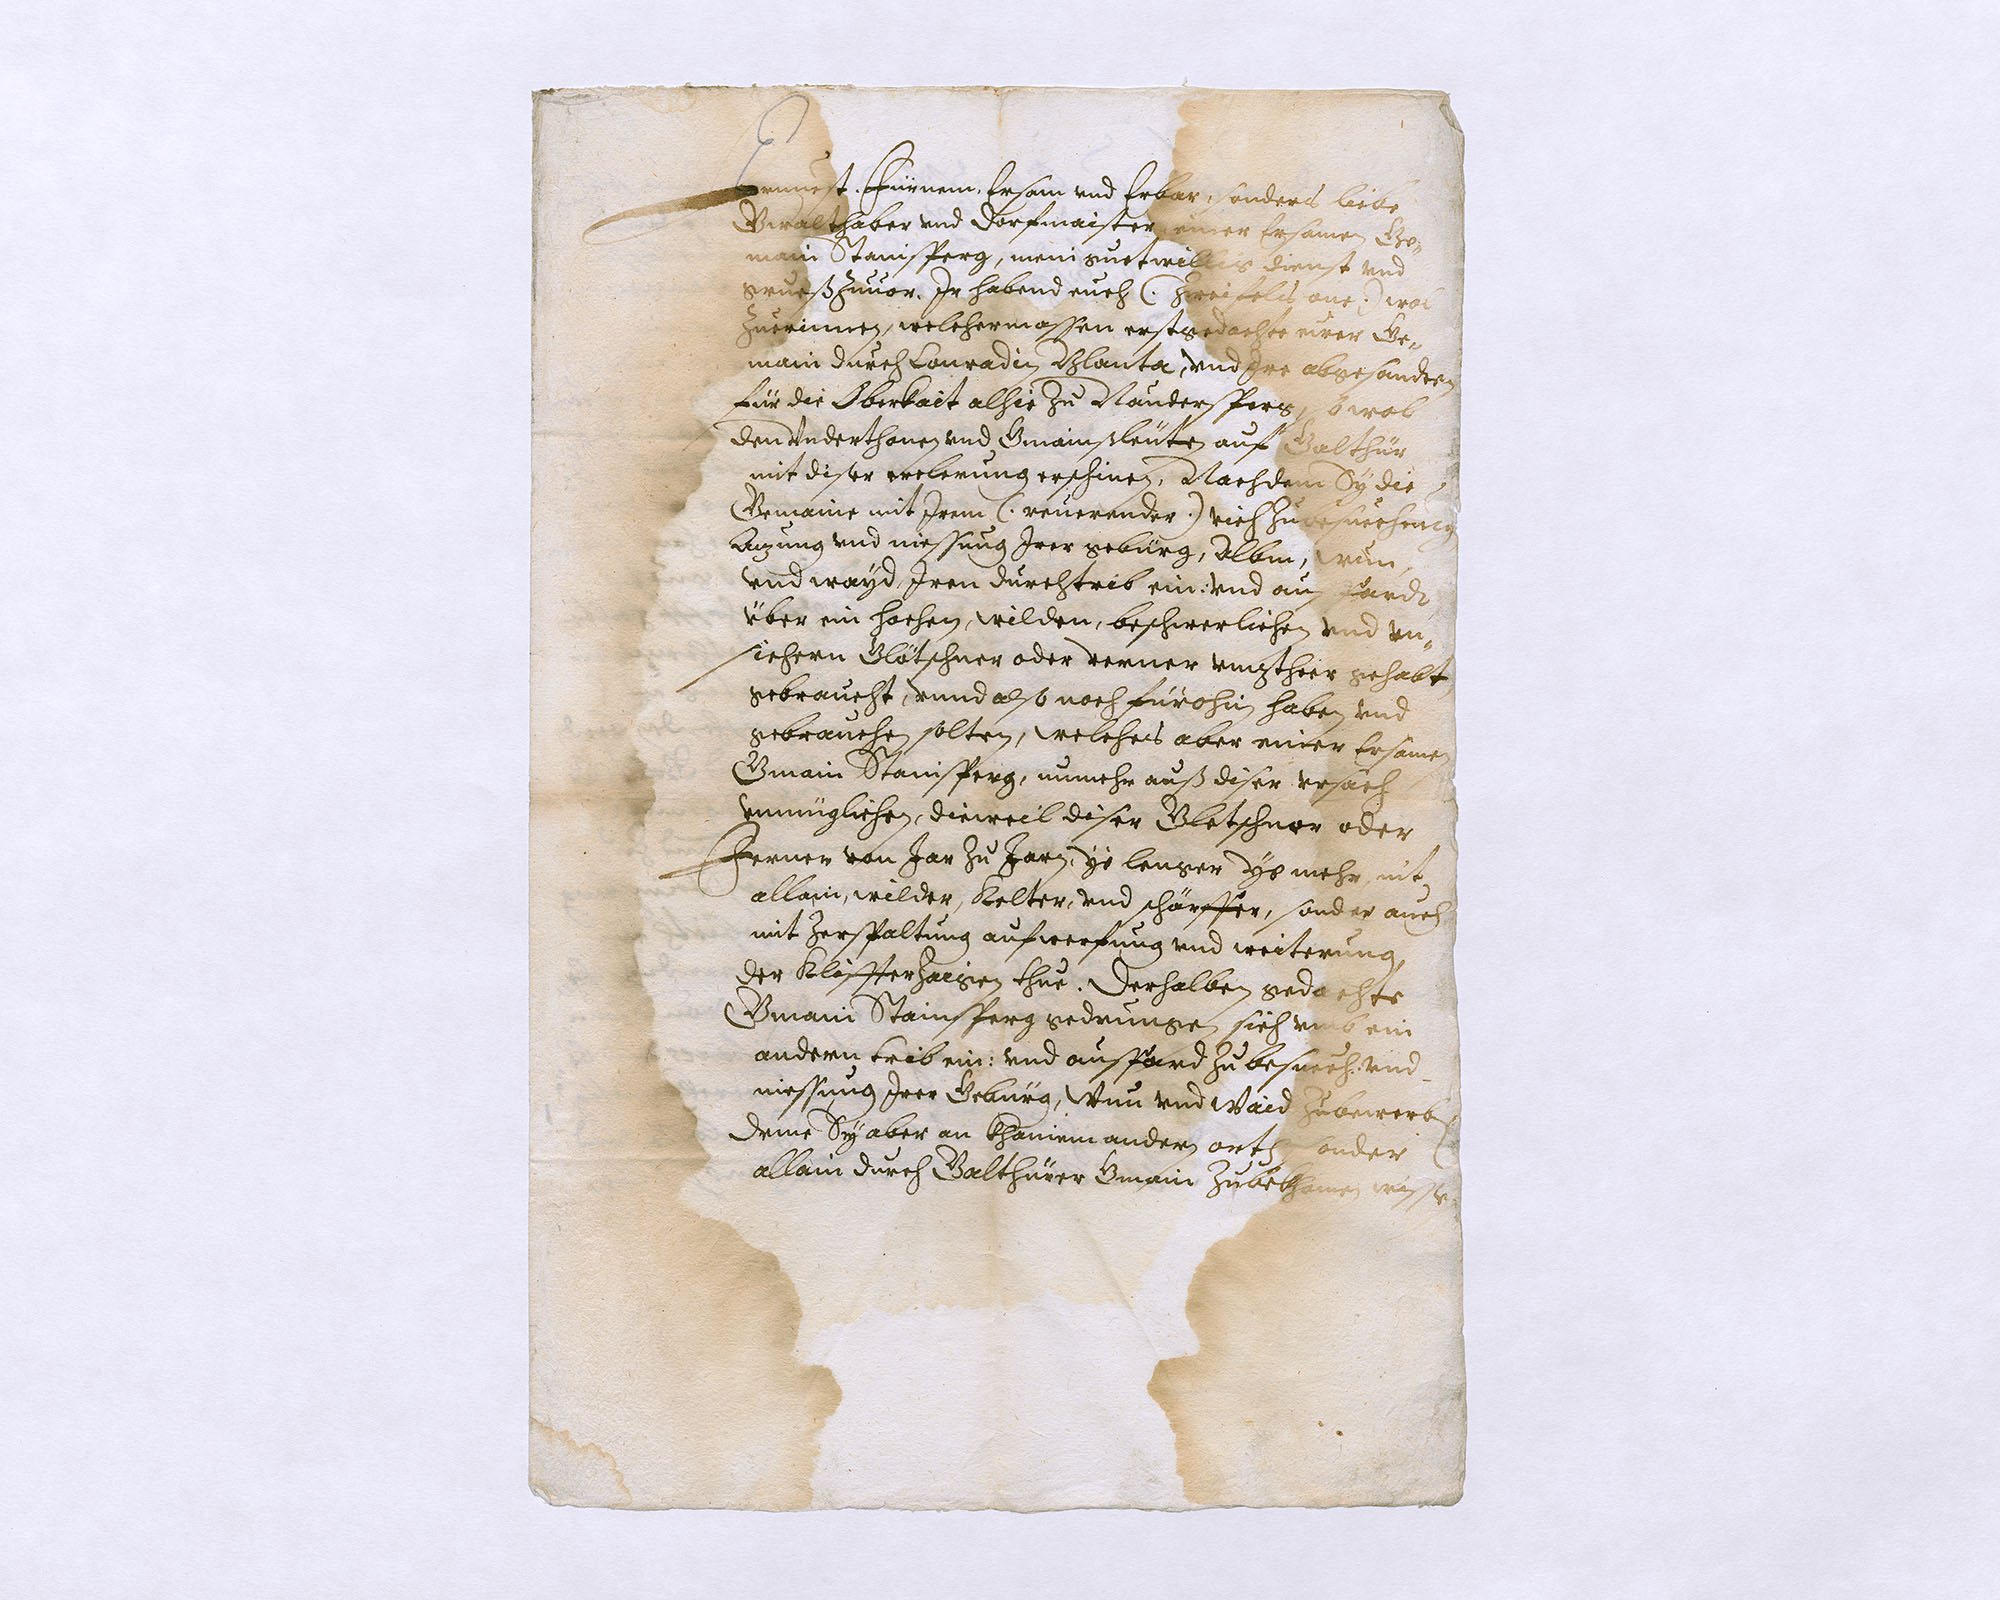 Ernuest. Fürnem, Ersam vnd Erbar, sonders liebe
Gwalthaber vnd Dorfmaister einer Ersamen Ge-
main Stainsperg, mein guetwillig dienst vnd
grueß zuuor. Ir habend euch (. zweifels one .) wol
zuerinnen, welchermassen erstgedachte eurer Ge-
main durch Conradin Planta, vnd Ire abgesandten
für die Oberkait alhie zu Naudersperg, sowol
den vnderthonen vnd Gmainßleüten auf Galthür
mit diser erclerung erschinen, Nachdem Sy die
Gemaine mit Irem (. reuerender .) vich zubesuechung
Azung vnd niessung Irer gebürg, Albm, Wun,
vnd wayd, Iren durchtrib ein: vnd auß fardt
über ein hochen, wilden, beschwerlichen vnd vn-
sichern Glötschner oder verner vnzther gehabt
gebraucht, vnnd also noch fürohin haben vnd
gebrauchen solten, welches aber einer Ersamen
Gmain Stainsperg, nunmehr auß diser vrsach
vnmüglichen, dieweil diser Gletschner oder
Ferner von Jar zu Jarn, ye lenger ye mehr, nit
allain, wilder, kelter, vnd schärffer, sonder auch
mit Zerspaltung aufwerfung vnd weiterung,
der Kliffter Zaigen thue. Derhalben gedachte
Gmain Stainsperg gedrungen sich vmb ein
andern trib ein: vnd ausfard zu besuech: vnd
niessung Irer Gebürg, Wun vnd Waid zubewerben
deme Sy aber an khainem andern orth sonder
allain durch Galthürer Gmain zubekhomen wisse